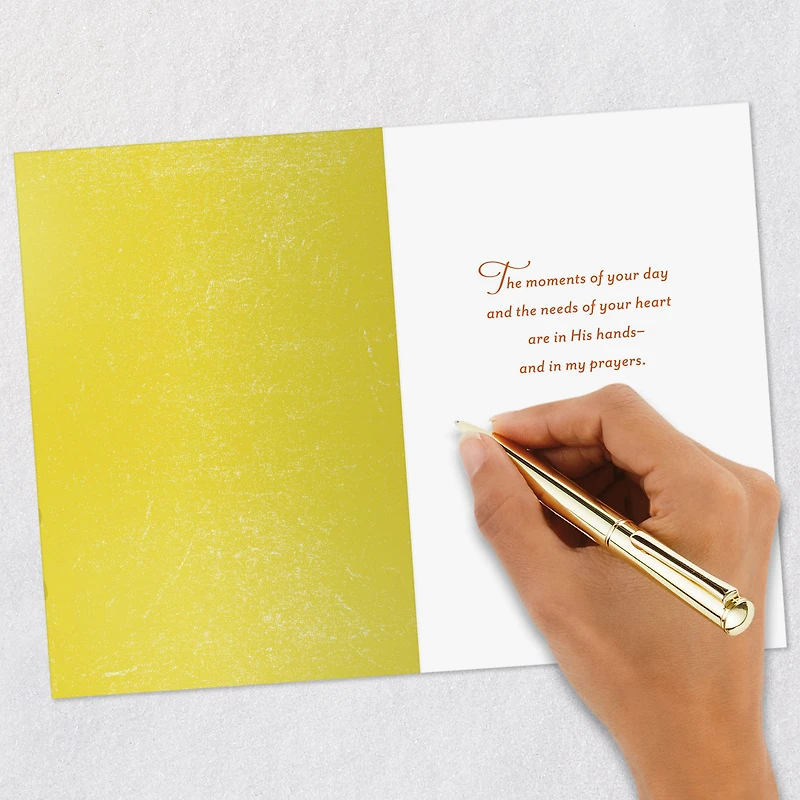 The moments of your day
and the needs of your heart
are in His hands–
and in my prayers.